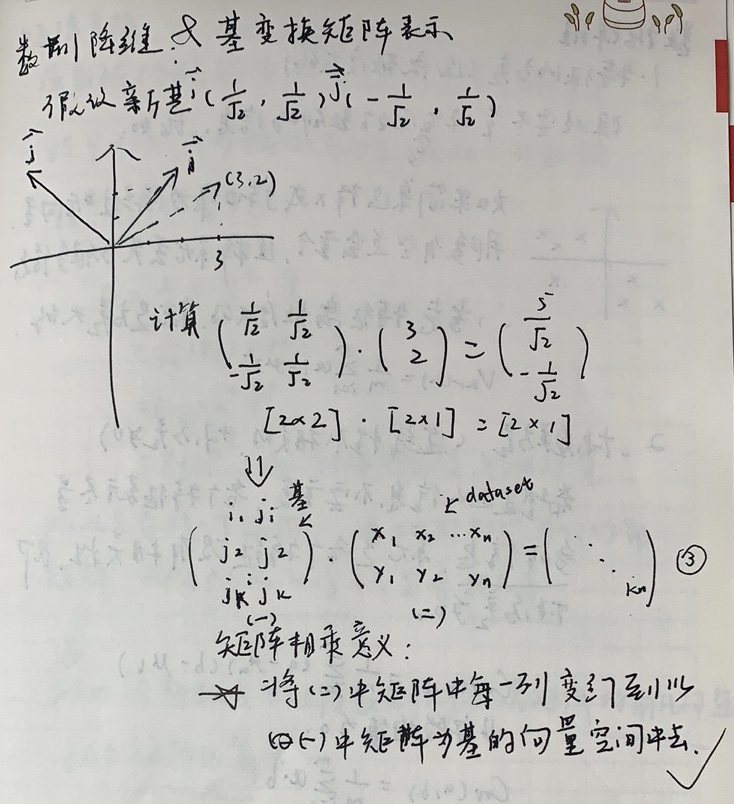 数据降维: & 基变换矩阵表示
假设新基 i(1/√2, 1/√2) j(-1/√2, 1/√2)
j i (3,2)
3
计算 (1/√2 1/√2; -1/√2 1/√2) · (3; 2) = (5/√2; -1/√2)
[2×2] · [2×1] = [2×1]
⇓
基 dataset
(i₁ j₁; j₂ j₂; ⋮ jk jk) · (x₁ x₂ …xn; y₁ y₂ yn) = ( ⋱ kn) ③
(一) (二)
矩阵相乘意义:
将(二)中矩阵中每一列变到到以
(一)中矩阵为基的向量空间中去.